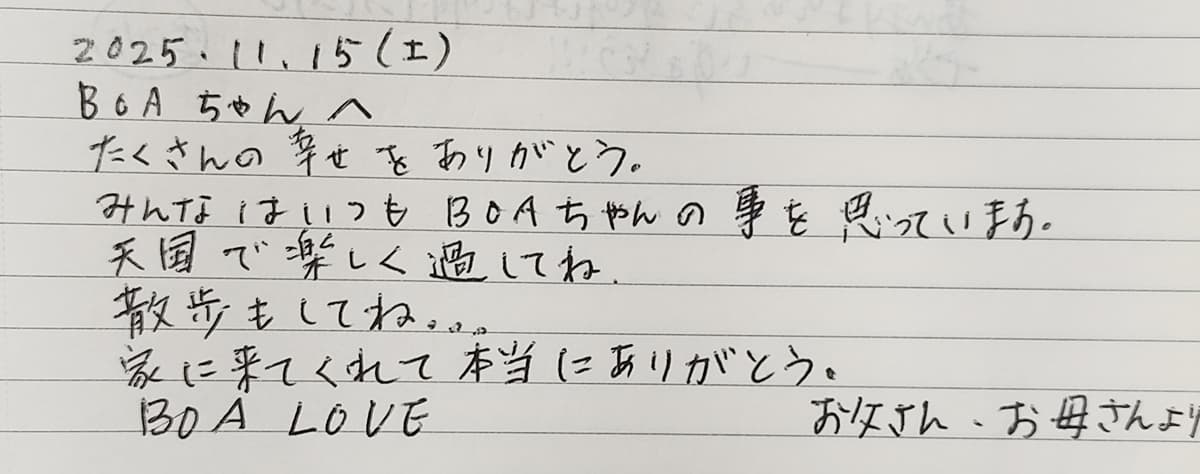 2025.11.15(土)
BOAちゃんへ
たくさんの幸せをありがとう。
みんなはいつもBOAちゃんの事を思っています。
天国で楽しく過してね.
散歩もしてね....
家に来てくれて本当にありがとう。
BOA LOVE
お父さん、お母さんより